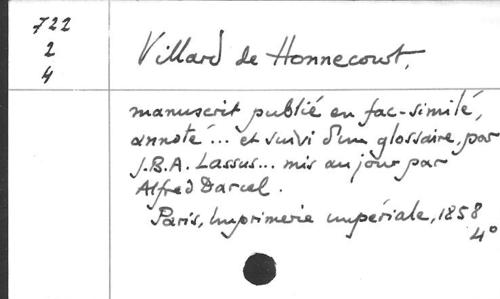 722
2
4
Villard de Honnecourt,
manuscrit publié en fac-similé,
annoté... et suivi d'un glossaire, par
J.B.A. Lassus... mis au jour par
Alfred Darcel.
Paris, Imprimerie impériale, 1858
4°